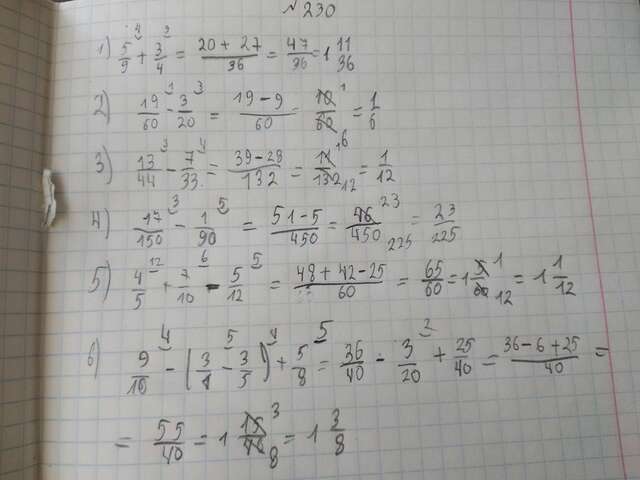 № 230
1) 5/9 + 3/4 = 20 + 27/36 = 47/36 = 1 11/36
2) 19/60 - 3/20 = 19 - 9/60 = 10/60 = 1/6
3) 13/44 - 7/33 = 39 - 28/132 = 11/132 = 1/12
4) 17/150 - 1/90 = 51 - 5/450 = 46/450 = 23/225
5) 4/5 + 7/10 - 5/12 = 48 + 42 - 25/60 = 65/60 = 1 5/60 = 1 1/12
6) 9/10 - (3/4 - 3/5) + 5/8 = 36/40 - 3/20 + 25/40 = 36 - 6 + 25/40 =
= 55/40 = 1 15/40 = 1 3/8